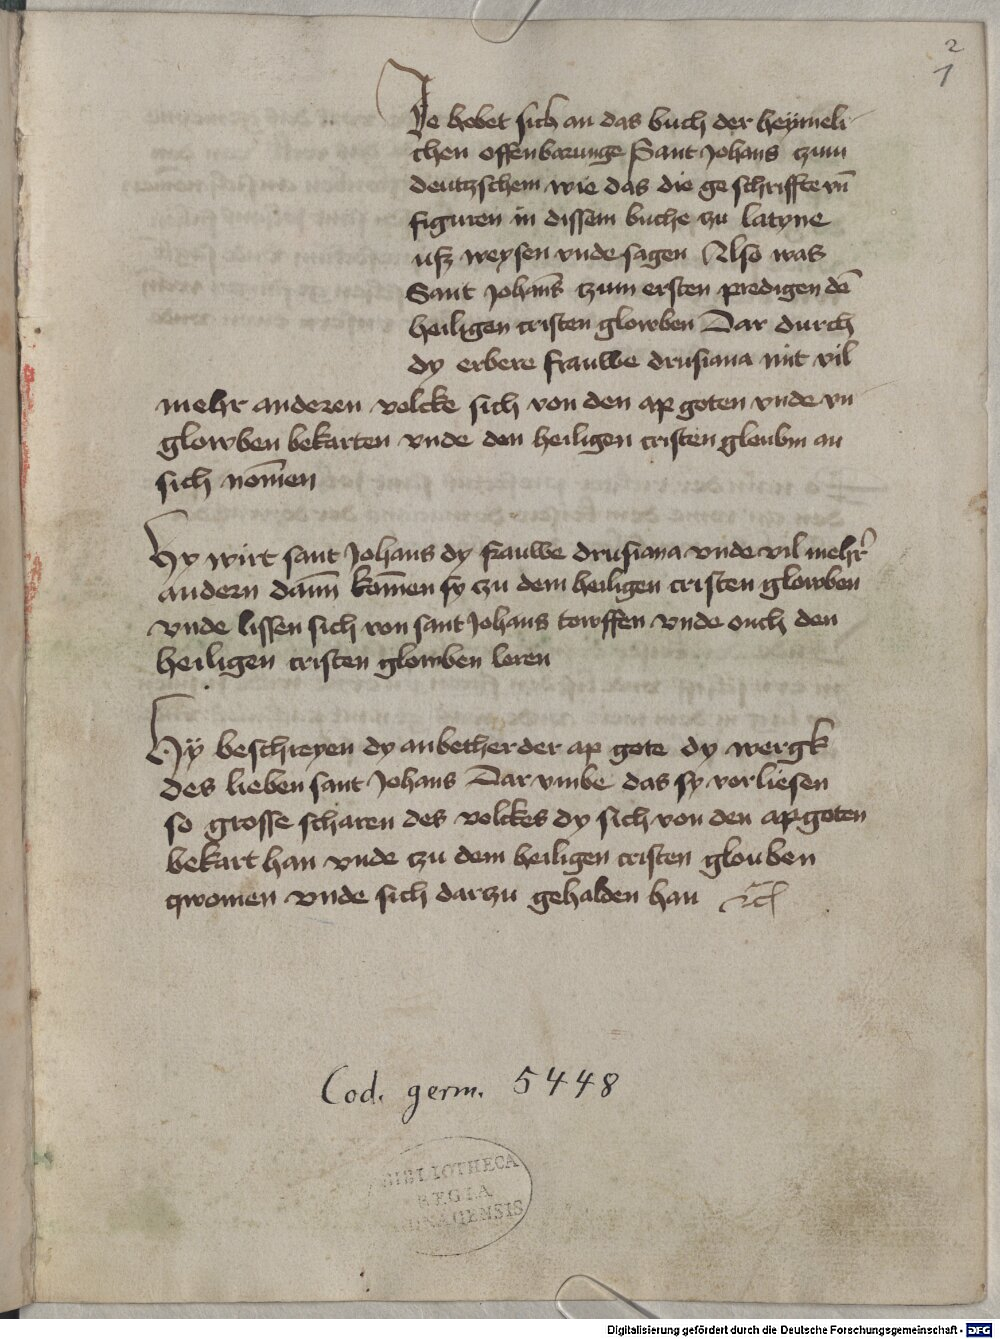 2
1
Je hebet sich an das buch der heÿmeli
chen offenbarunge Sant Johans zum
deutzschem wie das die ge schriffte vn̄
figuren in dissem buche zu latyne
usz weysen vnde sagen Also was
Sant Johan̄s zum ersten predigen dē
heiligen cristen glowben Dar durch
dy erbere frauwe drusiana mit vil
mehr anderen volcke sich von den ap goten vnde vn
glowben bekarten vnde den heiligen cristen gleubin an
sich nom̄en
Hy wirt sant Johans dy frauwe drusiana vnde vil mehr
andern dan̄n kom̄en sy zu dem heiligen cristen glowben
vnde lissen sich von sant Johans towffen vnde ouch den
heiligen cristen glowben leren
Hÿ beschreyen dy anbether der ap gote dy wergk
des lieben sant Johans Dar vmbe das sy vorliesen
so grosse scharen des volckes dy sich von den apgoten
bekart han vnde zu dem heiligen cristen glouben
qwomen vnde sich darzu gehalden han
Cod. germ. 5448
BIBLIOTHECA
REGIA
MONACENSIS
Digitalisierung gefördert durch die Deutsche Forschungsgemeinschaft - DFG